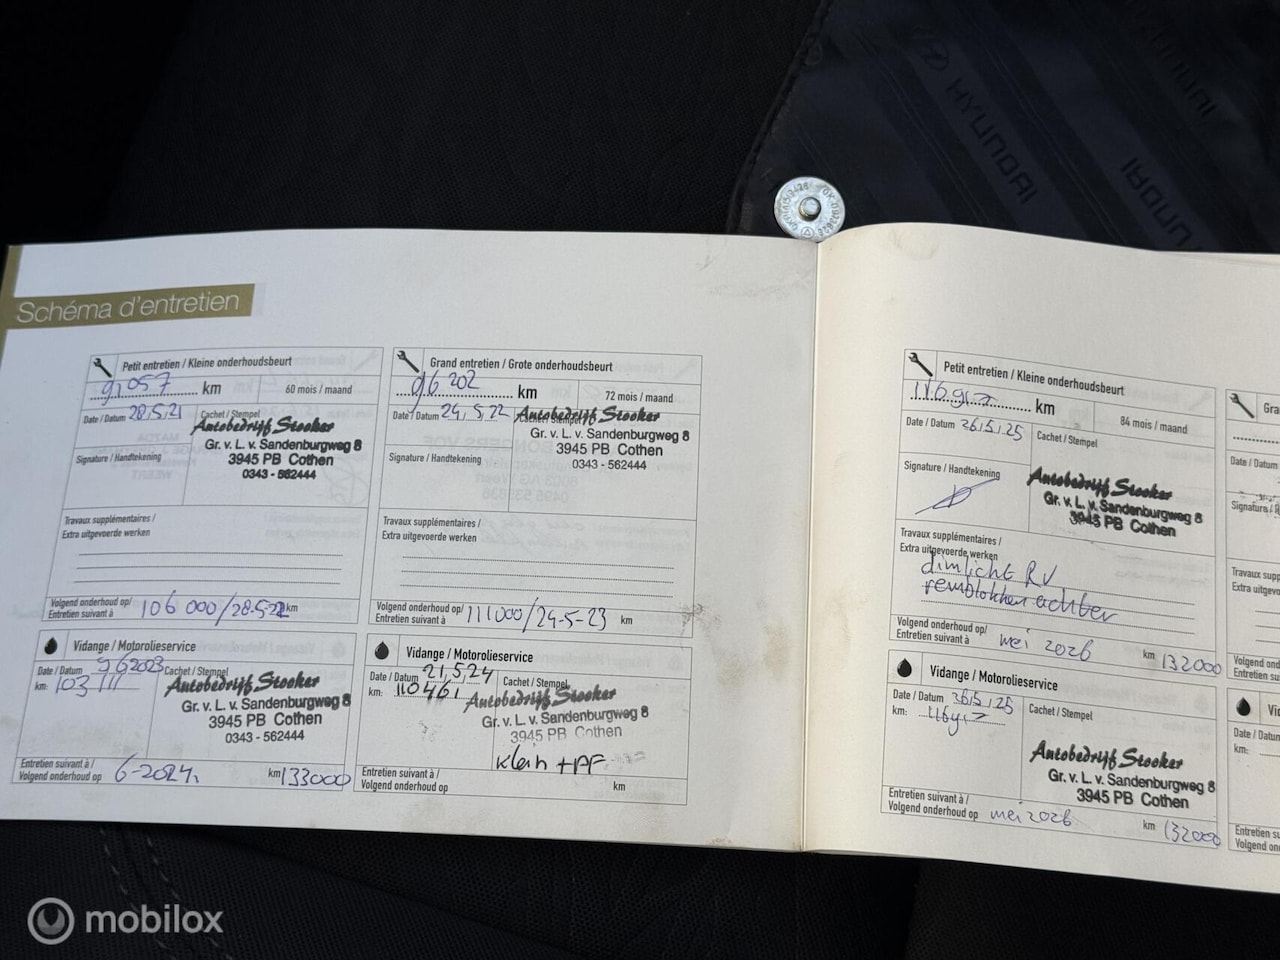 HYUNDAI
HYUNDAI
HYUNDAI
Schéma d'entretien
Petit entretien / Kleine onderhoudsbeurt
91057 km
60 mois / maand
Date / Datum 28.5.21
Cachet / Stempel
Autobedrijf Stooker
Gr. v. L. v. Sandenburgweg 8
3945 PB Cothen
0343 - 562444
Signature / Handtekening
Travaux supplémentaires /
Extra uitgevoerde werken
Volgend onderhoud op/
Entretien suivant à 106 000/28-5-22 km
Grand entretien / Grote onderhoudsbeurt
96 202 km
72 mois / maand
Date / Datum 24, 5.22
Cachet / Stempel
Autobedrijf Stooker
Gr. v. L. v. Sandenburgweg 8
3945 PB Cothen
0343 - 562444
Signature / Handtekening
Travaux supplémentaires /
Extra uitgevoerde werken
Volgend onderhoud op/
Entretien suivant à 111000/24-5-23 km
Vidange / Motorolieservice
Date / Datum 9 6 2023
km: 103 111
Cachet / Stempel
Autobedrijf Stooker
Gr. v. L. v. Sandenburgweg 8
3945 PB Cothen
0343 - 562444
Entretien suivant à /
Volgend onderhoud op 6-2024. km 133000
Vidange / Motorolieservice
Date / Datum 21,5,24
km: 110461
Cachet / Stempel
Autobedrijf Stooker
Gr. v. L. v. Sandenburgweg 8
3945 PB Cothen
klein + PF
Entretien suivant à /
Volgend onderhoud op km
Petit entretien / Kleine onderhoudsbeurt
km
84 mois / maand
Date / Datum 26.5.25
Cachet / Stempel
Autobedrijf Stooker
Gr. v. L. v. Sandenburgweg 8
3945 PB Cothen
Signature / Handtekening
Travaux supplémentaires /
Extra uitgevoerde werken
dimlicht RV
remblokken achter
Volgend onderhoud op/
Entretien suivant à mei 2026 km 132000
Vidange / Motorolieservice
Date / Datum 26.5.25
km:
Cachet / Stempel
Autobedrijf Stooker
Gr. v. L. v. Sandenburgweg 8
3945 PB Cothen
Entretien suivant à /
Volgend onderhoud op mei 2026 km 132000
Date / Datum
Signature /
Travaux supp
Extra uitgevo
Volgend ond
Entretien sui
Date / Datum
km:
Entretien su
Volgend ond
mobilox